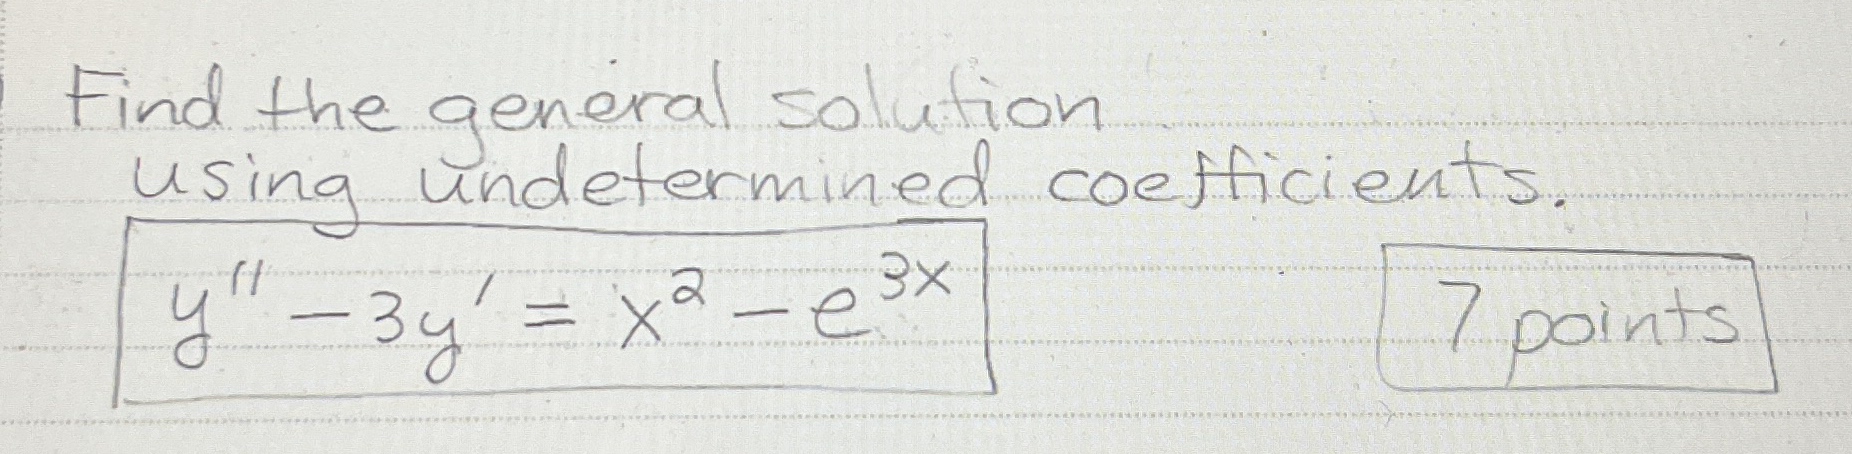 Find the general solution
using undetermined coefficients.
y'' - 3y' = x² - e³ˣ
7 points